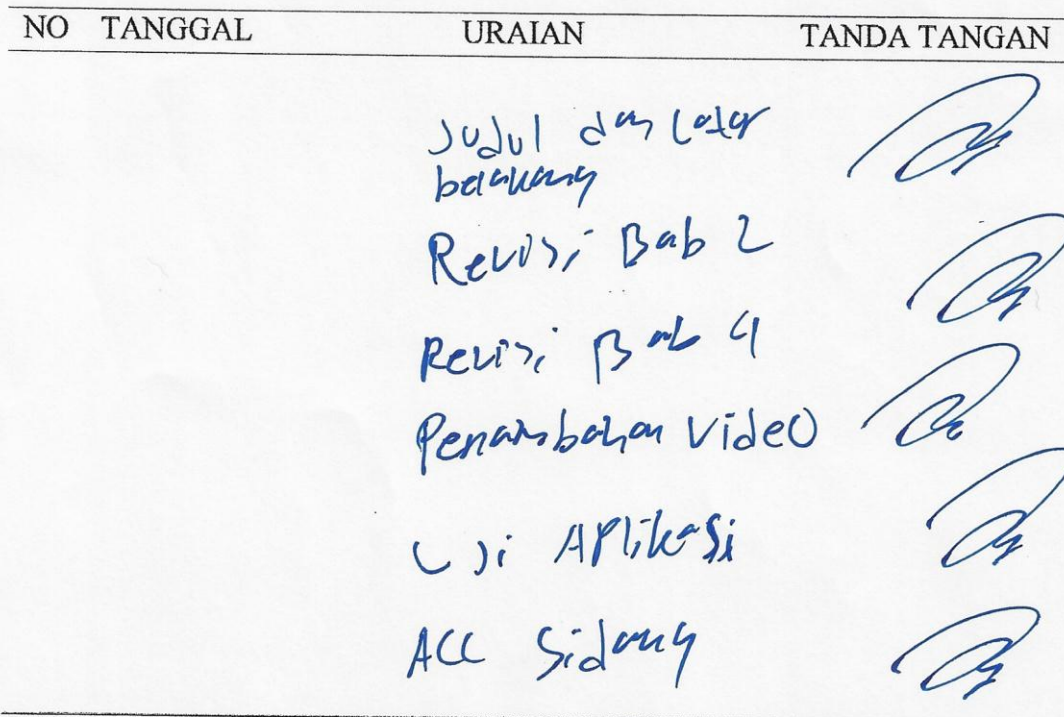 NO TANGGAL URAIAN TANDA TANGAN
Judul dan Latar
belakang
Revisi Bab 2
Revisi Bab 4
Penambahan Video
Uji Aplikasi
ACC Sidang